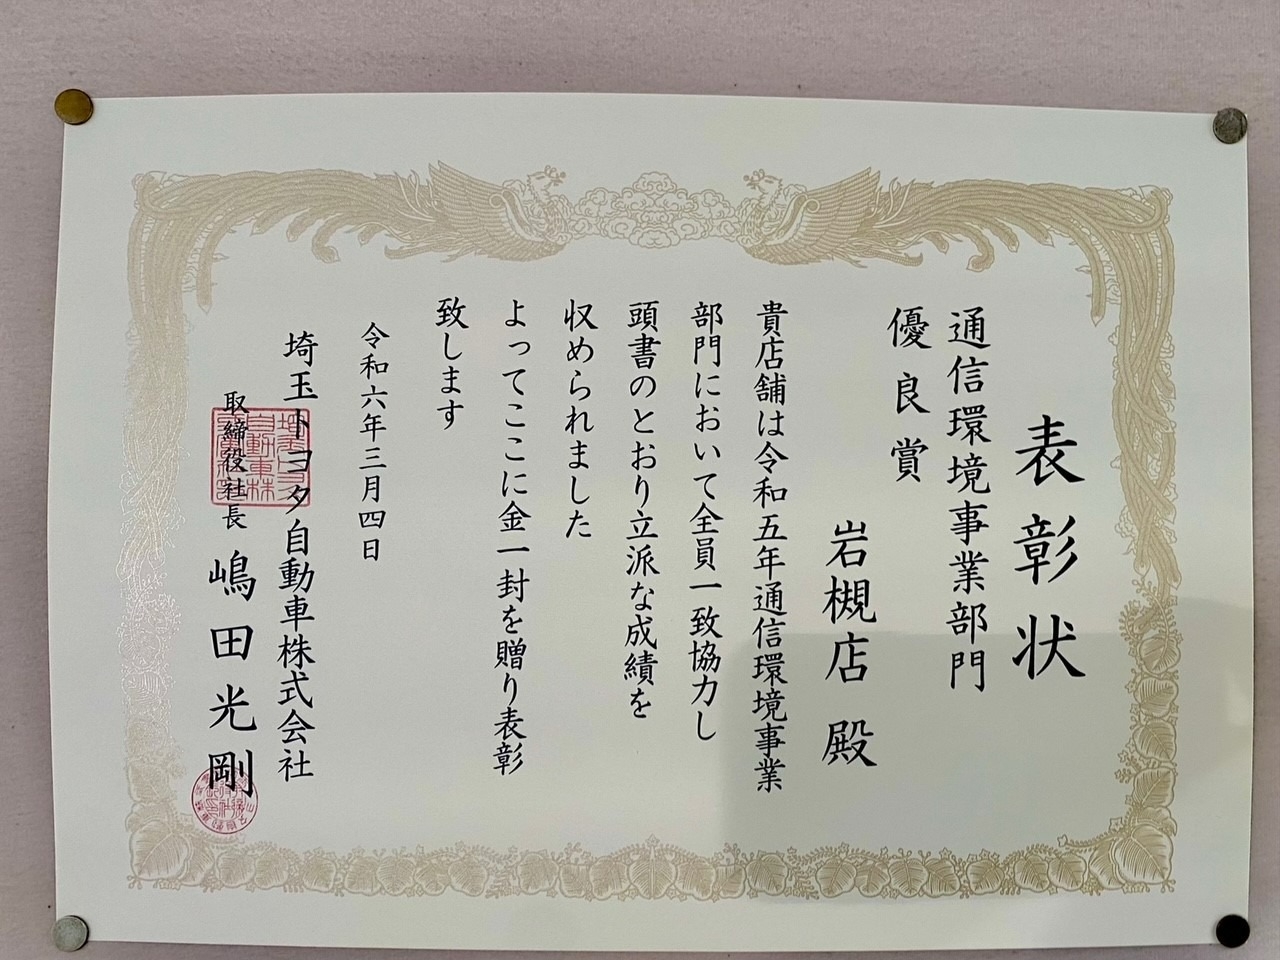 表彰状
通信環境事業部門
優良賞
岩槻店 殿
貴店舗は令和五年通信環境事業
部門において全員一致協力し
頭書のとおり立派な成績を
収められました
よってここに金一封を贈り表彰
致します
令和六年三月四日
埼玉トヨタ自動車株式会社
取締役社長 嶋田光剛